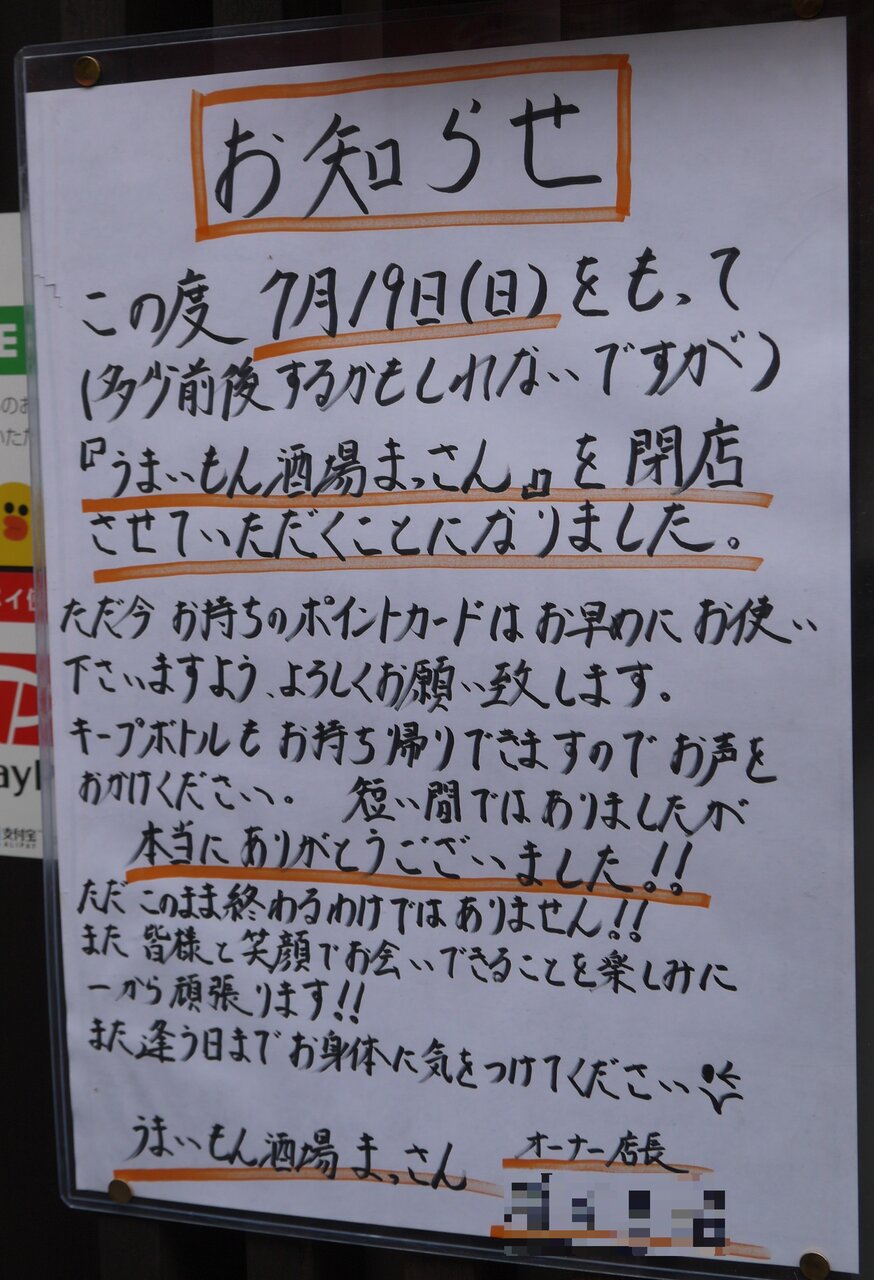 お知らせ
この度 7月19日(日)をもって
(多少前後するかもしれないですが)
『うまいもん酒場まっさん』を閉店
させていただくことになりました。
ただ今 お持ちのポイントカードはお早めにお使い
下さいますよう、よろしくお願い致します。
キープボトルもお持ち帰りできますのでお声を
おかけください。 短い間ではありましたが
本当にありがとうございました!!
ただこのまま終わるわけではありません!!
また皆様と笑顔でお会いできることを楽しみに
一から頑張ります!!
また逢う日までお身体に気をつけてください
うまいもん酒場まっさん
オーナー店長
E
のお
いただ
イ使
P
ayP
支付宝
ALIPAY